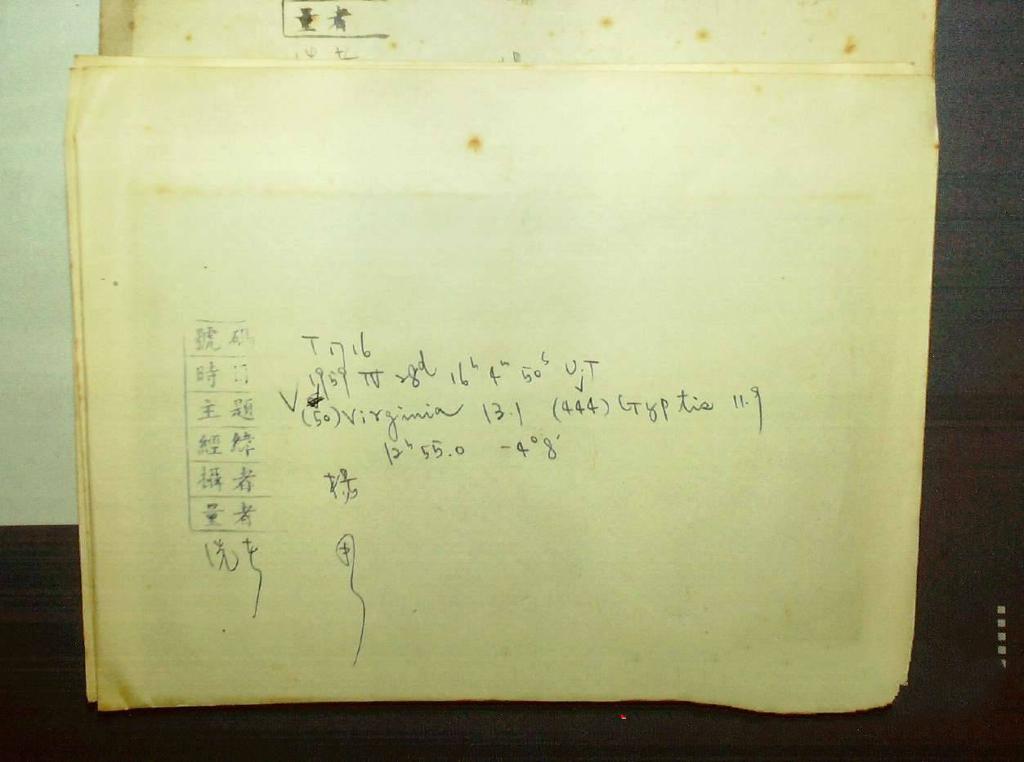 量者
號碼 T1716
時日 1959 IV 28d 16h 4m 50s UjT
主題 V (50) Virginia 13.1 (444) Gyptis 11.9
經緯 12h 55.0 -4° 8'
攝者 楊
量者
洗者